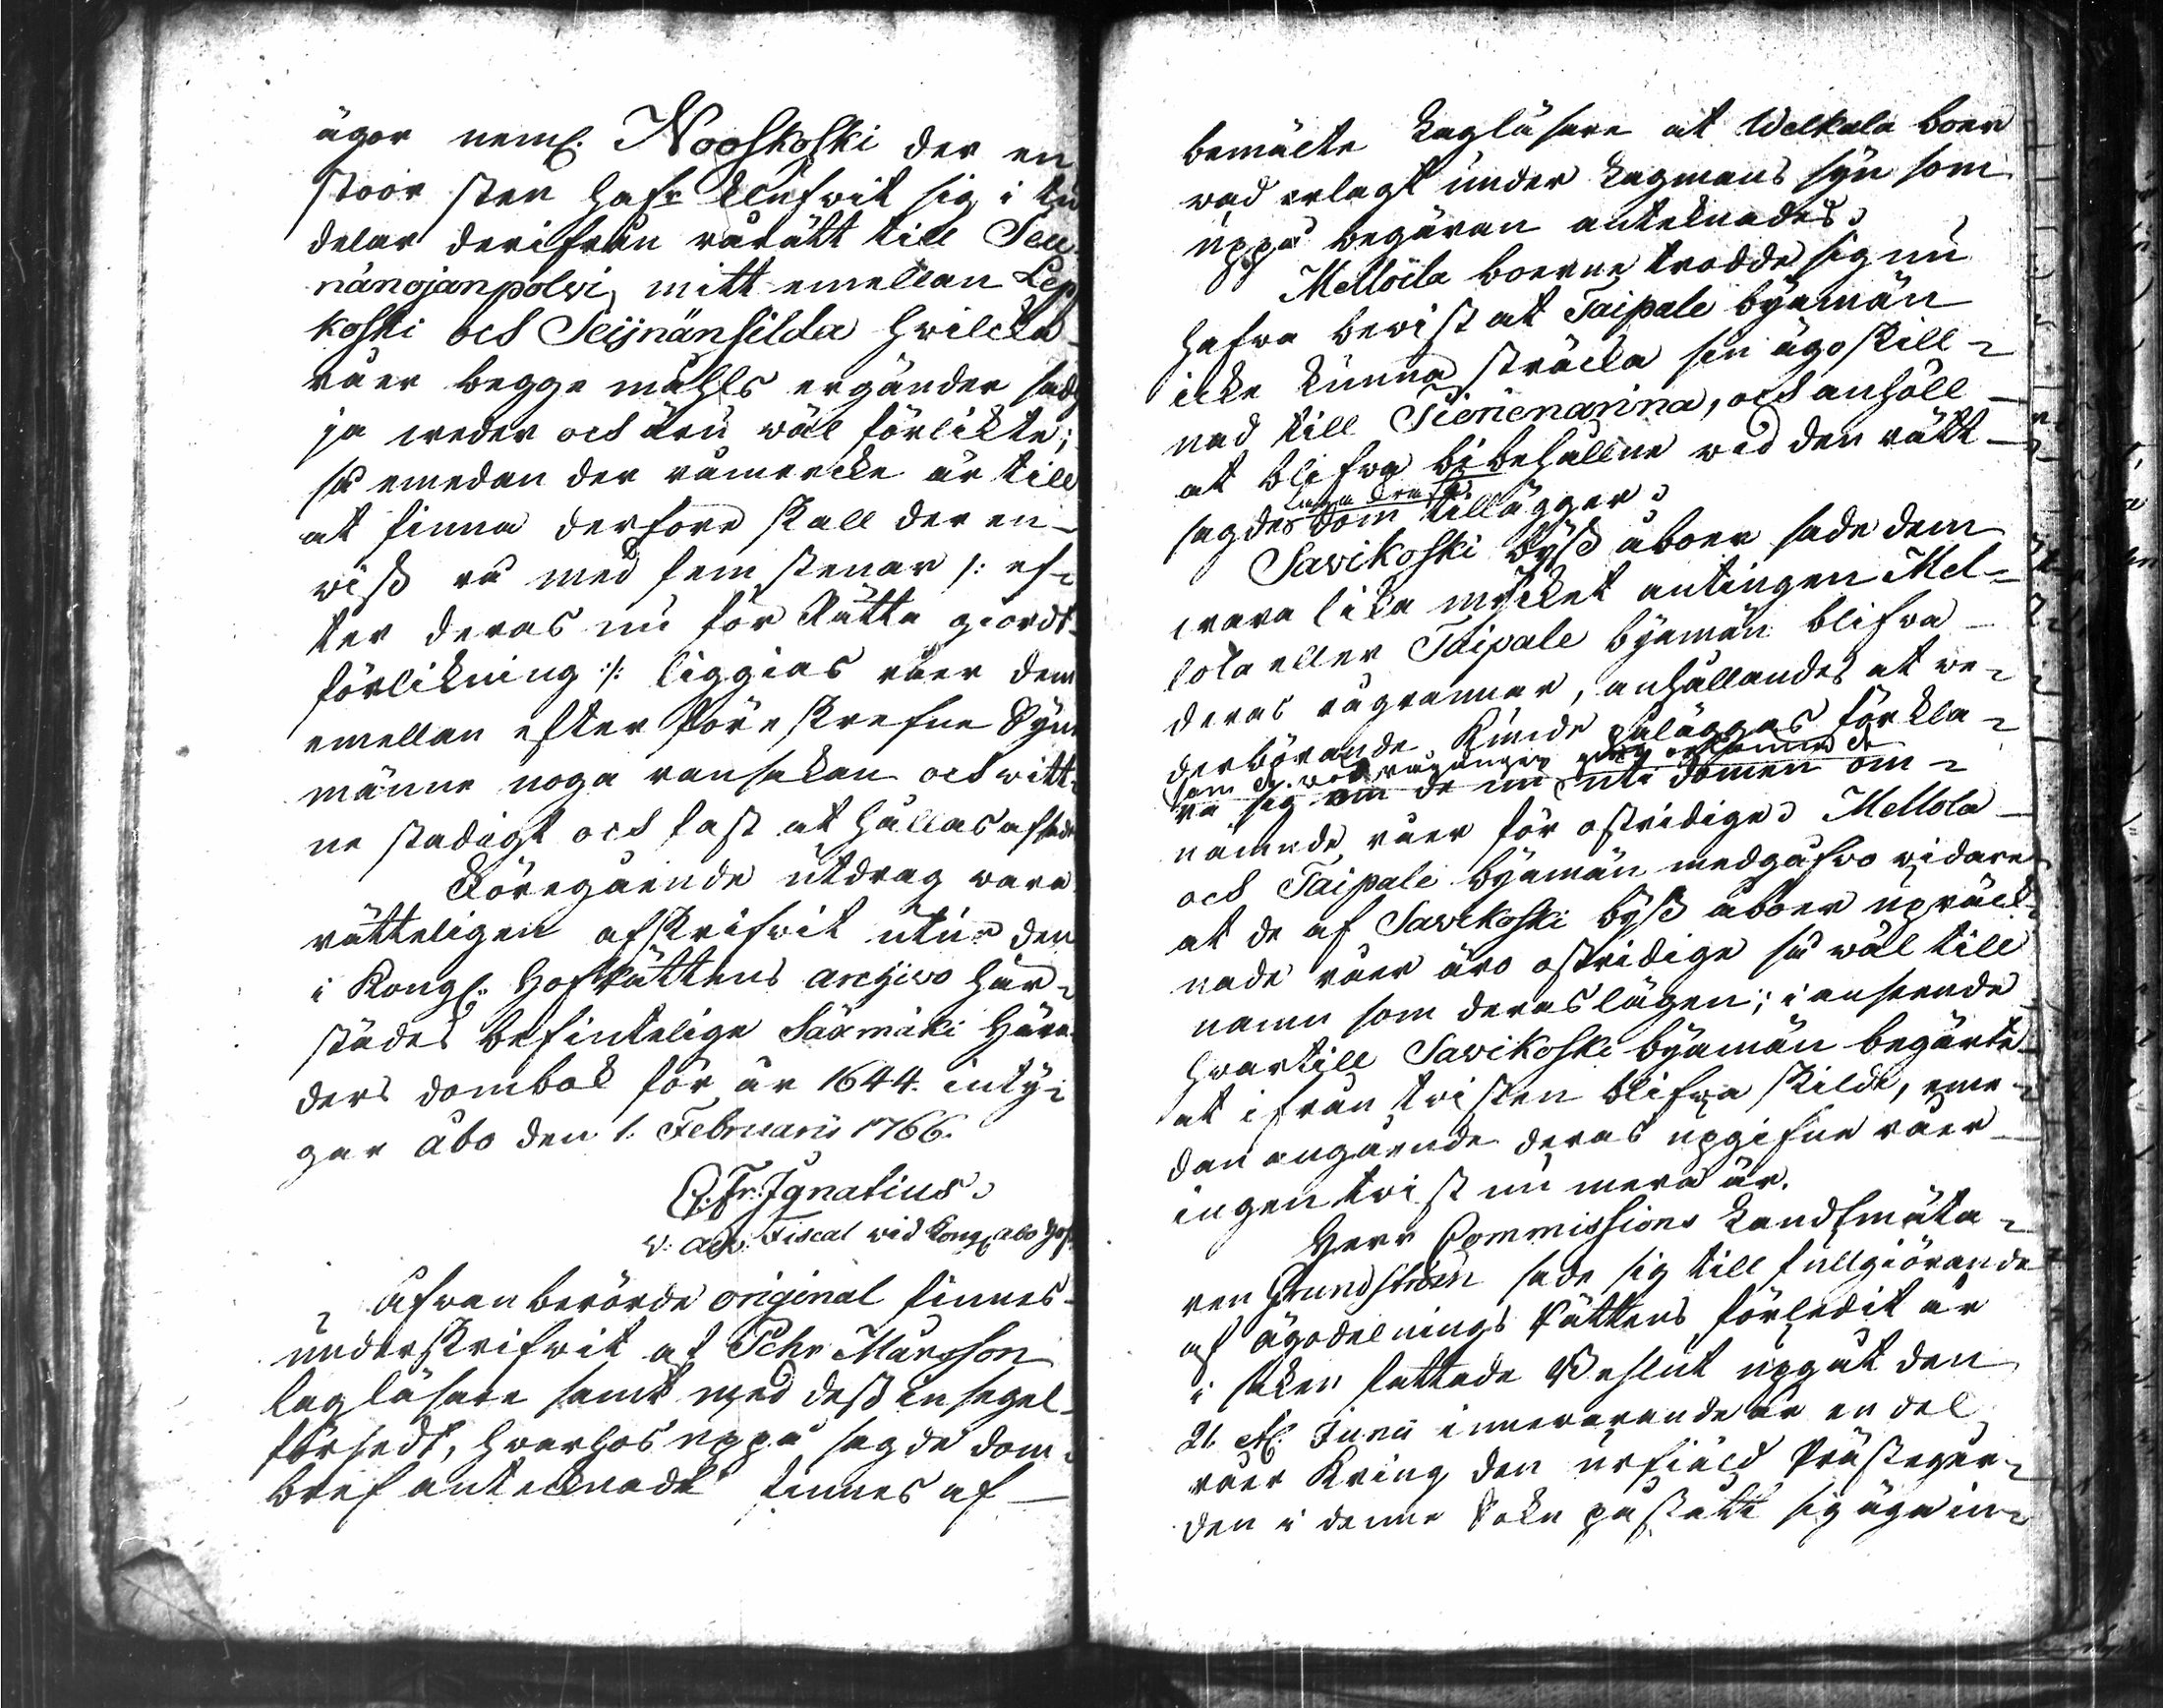 ägor neml. Nooskoski der en
stoor sten hafr klufwit sig i tu
delar derifrån rårätt till Sei
nänojanpolwi, mitt emellan Lep
koski och Seijnänsilda hwilcka
råer begge måhls ergånder sade
ja weder och äru wäl förlickte;
så emedan der råmercke är till
at finna derföre skall der en
wiss rå med fem stenar /: ef¬
ter deras nu för Rätta giordt
förlikning :/: liggias råer dem
emellan efter föreskrefne Syne
männe noga ransakan och witt¬
ne stadigt och fast at hållas
Föregående utdrag wara
rätteligen afskrifwit utur den
i Kongl: HofRättens archivo här¬
städes befintelige Säxmäki Hära
ders dombok för år 1644. inty¬
gar Åbo den 1. Februarii 1766.
C. Fr: Ignatius.
v. adv. Fiscal wid Kongl Åbo Hof
Ofwanberörde original finnes
underskrifwit af Pehr Mårsson
lagläsare samt med dess insegel
försedt, hwarhos uppå sagde dom
bref antecknadt finnes af
bemälte Lagläsare at Welkala boer
wad erlagt under Lagmans syn som
uppå begäran anteknades.
Melloila boerne trodde sig nu
hafwa bewist at Taipale byamän
icke kunna sträcka sin ägoskill¬
nad till Sienenarina, och anhöll
at blifwa bibehållne wid den rätt
sagde dom tillägger.
Sawikoski byss åboer sade dem
wara lika mycket antingen Mel¬
lola eller Taipale byamän blifwa
deras rågrannar, anhållandes at we¬
derbörande kunde påläggas förkla¬
ra sig om de nu uti domen om¬
nämnde råer för ostridige. Mellola
och Taipale byamän medgåfwo widare
at de af Sawikoski byss åboer upräck¬
nade råer äro ostridige så wäl till
namn som deras lägen; i anseende
hwartill Sawikoski byamän begärte
at ifrån twisten blifwa skilde, eme¬
dan angående deras upgifne råer
ingen twist nu mera är.
Herr Commissions Landtmäta¬
ren Grundström sade sig till fullgiörande
af ägodelnings Rättens förledit år
i saken fattade Beslut upgåt den
21 Junii innewarande år en del
råer kring den urfiäld Prästegår¬
den i denne Sokn påstått sig äga in